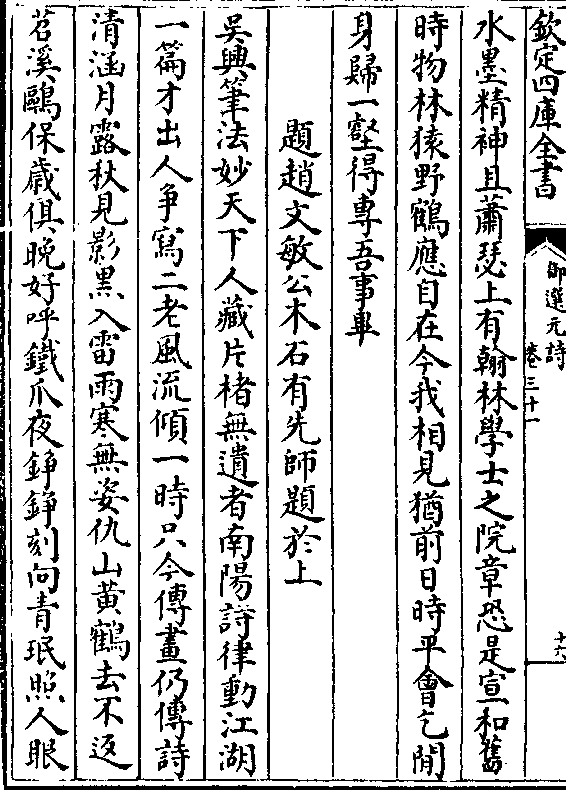 欽定四庫全書
御選元詩
卷三十一
十六
水墨精神且蕭瑟上有翰林學士之院章恐是宣和舊
時物林猿野鶴應自在今我相見猶前日時平會乞閒
身歸一壑得專吾事畢
題趙文敏公木石有先師題於上
吳興筆法妙天下人藏片楮無遺者南陽詩律動江湖
一篇才出人爭寫二老風流傾一時只今傳畫仍傳詩
清涵月露秋見影黑入雷雨寒無姿仇山黃鶴去不返
苕溪鷗保歲俱晚好呼鐵爪夜錚錚刻向青珉照人眼